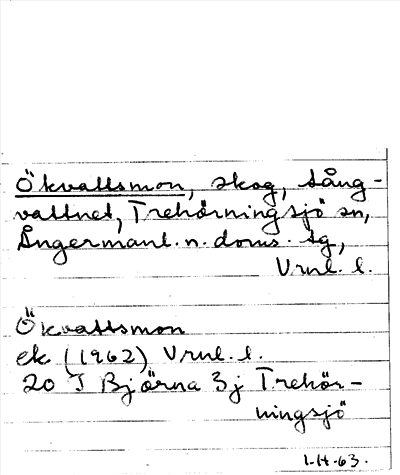 Ökvattsmon, skog, Lång-
vattnet, Trehörningsjö sn,
Ångermanl. n. doms. tg,
Vrnl. l.
Ökvattsmon
ek (1962) Vrnl. l.
20 I Björna 3j Trehör-
ningsjö
63.